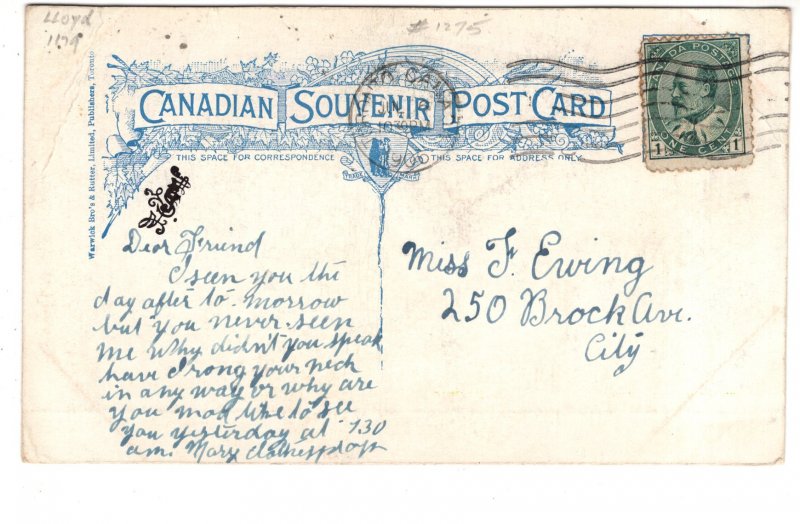 Lloyd
1179
# 1275
CANADIAN SOUVENIR POST CARD
THIS SPACE FOR CORRESPONDENCE
THIS SPACE FOR ADDRESS ONLY
Warwick Bro's & Rutter, Limited, Publishers, Toronto
CANADA POSTAGE
1 ONE CENT 1
Dear Friend
I seen you the
day after to. morrow
but you never. seen
me Why didn't you speak
have I rong your neck
in any way or why are
you mad like to see
you yesturday at 130
am. Mary
Miss F. Ewing
250 Brock Ave.
City